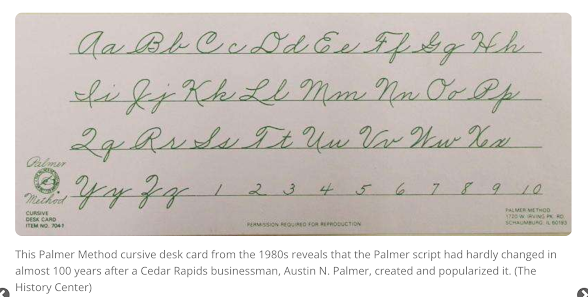 Aa Bb Cc Dd Ee Ff Gg Hh
Ii Jj Kk Ll Mm Nn Oo Pp
Qq Rr Ss Tt Uu Vv Ww Xx
Palmer
Method
Yy Zz 1 2 3 4 5 6 7 8 9 10
CURSIVE
DESK CARD
ITEM NO. 704-1
PERMISSION REQUIRED FOR REPRODUCTION
PALMER METHOD
1720 W. IRVING PK. RD.
SCHAUMBURG, IL 60193
This Palmer Method cursive desk card from the 1980s reveals that the Palmer script had hardly changed in
almost 100 years after a Cedar Rapids businessman, Austin N. Palmer, created and popularized it. (The
History Center)